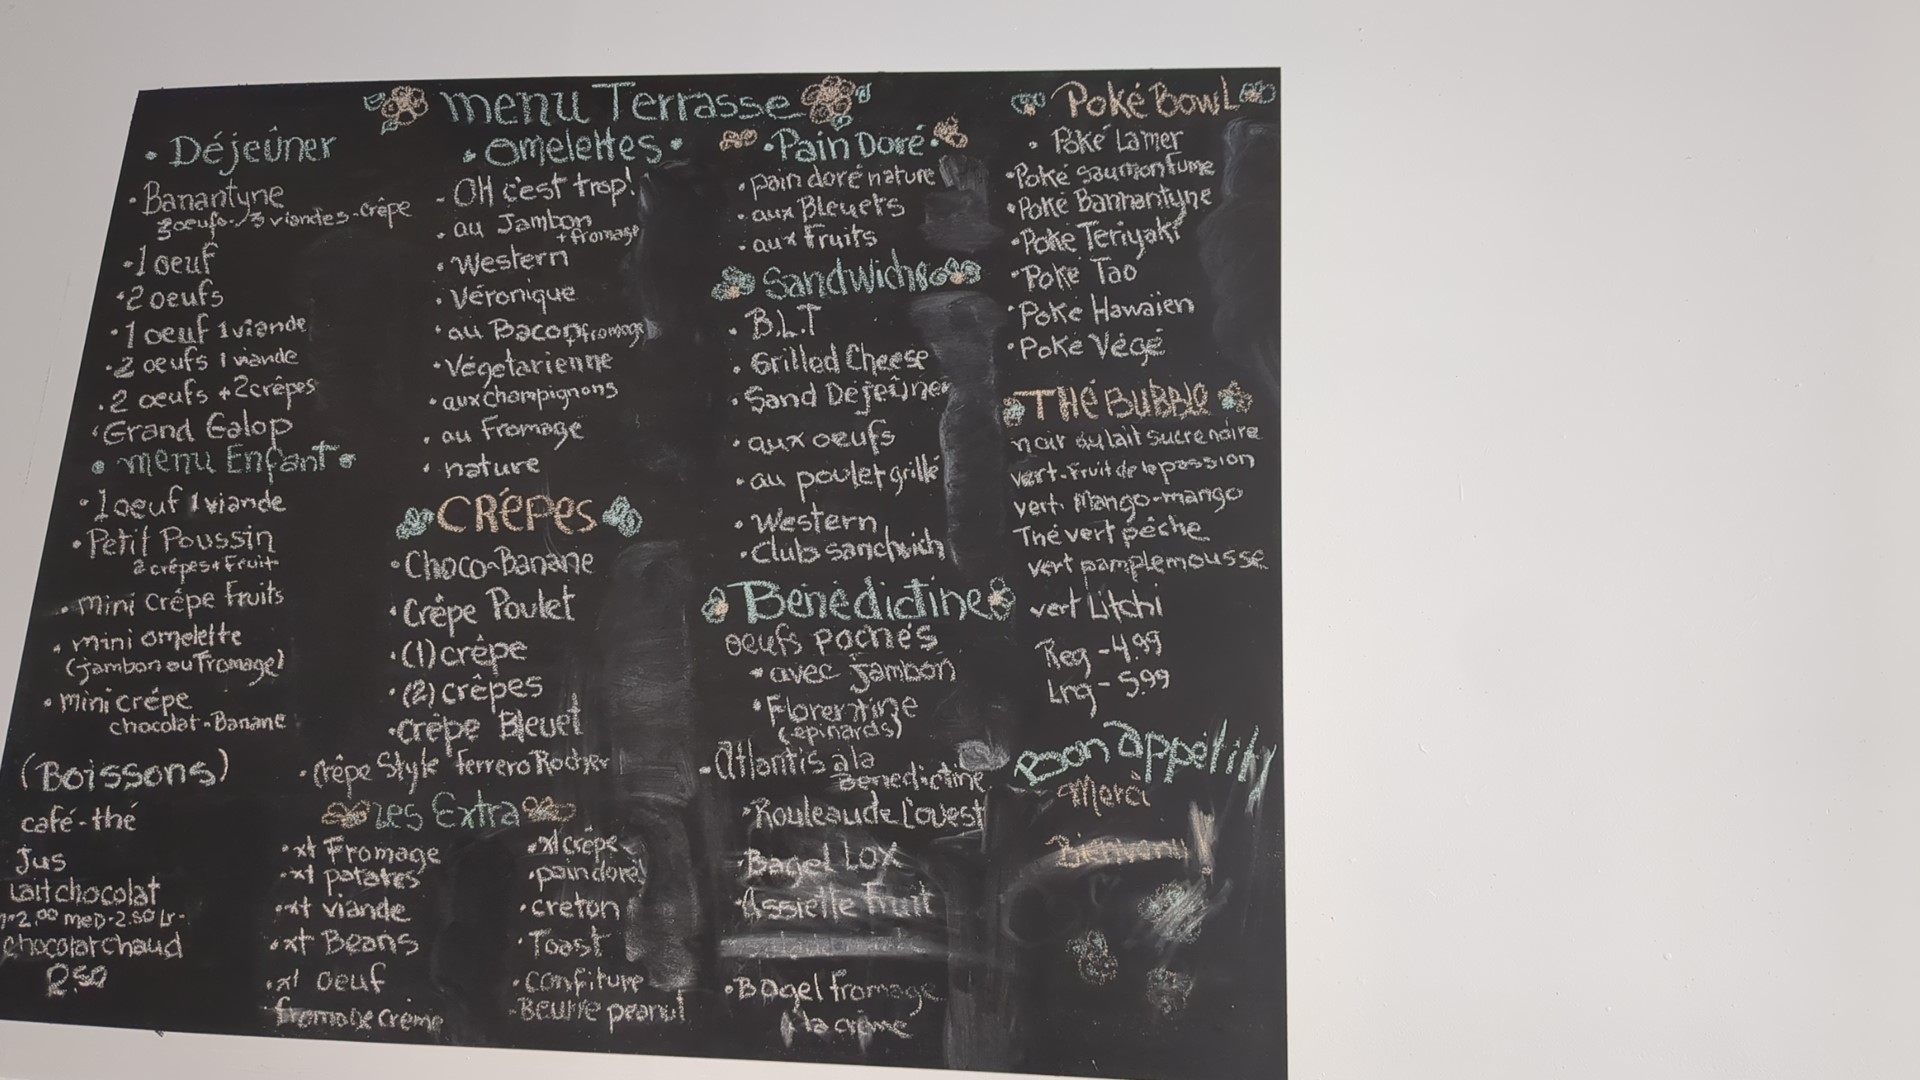 menu Terrasse
• Déjeûner
• Banantyne
3 oeufs-/3 viandes-crêpe
• 1 oeuf
• 2 oeufs
• 1 oeuf 1 viande
• 2 oeufs 1 viande
• 2 oeufs + 2 crêpes
• Grand Galop
• menu Enfant •
• 1 oeuf 1 viande
• Petit Poussin
2 crêpes + Fruit
• mini crêpe Fruits
• mini omelette
(jambon ou Fromage)
• mini crépe
chocolat-Banane
(Boissons)
café-thé
Jus
Lait chocolat
2.00 med-2.50 Lr-
chocolat chaud
2.50
• omelettes •
- OH c'est trop!
• au Jambon
+ fromage
• Western
• Véronique
• au Bacon fromage
• Végetarienne
• aux champignons
• au Fromage
• nature
CRÊPES
• Choco-Banane
• Crêpe Poulet
• (1) crêpe
• (2) crêpes
• crêpe Bleuet
• Crêpe Style Ferrero Rocher
Les Extra
• xt Fromage
• xt patates
• xt viande
• xt Beans
• xt oeuf
fromage crème
• xt crêpe
• pain doré
• creton
• Toast
• confiture
• Beurre peanut
• Pain Doré •
• pain doré nature
• aux Bleuets
• aux fruits
Sandwichs
• B.L.T
• Grilled Cheese
• Sand Déjeûner
• aux oeufs
• au poulet grillé
• Western
• Club sandwich
Bénédictine
oeufs pochés
• avec jambon
• Florentine
(épinards)
• Atlantis à la
Bénédictine
• Rouleau de L'ouest
• Bagel Lox
• Assiette Fruit
• Bagel fromage
à la crème
Poké Bowl
• Poké Lamer
• Poké Saumon fume
• Poké Bannantyne
• Poké Teriyaki
• Poké Tao
• Poké Hawaïen
• Poké Végé
THÉ BUBBLE
noir au lait sucre noire
vert-fruit de la passion
vert. Mango-mango
Thé vert pêche
vert pamplemousse
vert Litchi
Reg - 4.99
Lrg - 5.99
Bon appétit
Merci